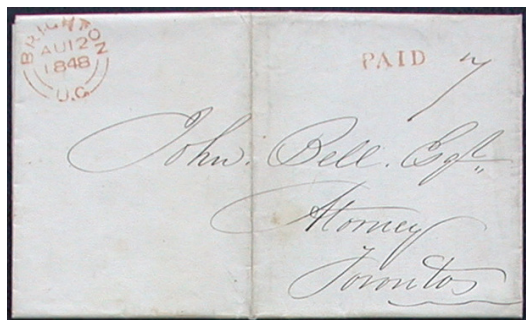 BRIGHTON
AU 12
1848
U.C.
PAID 7
John. Bell. Esqr.
Attorney
Toronto